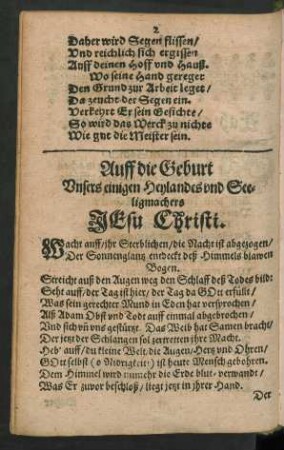 2
Daher wird Segen flissen/
Vnd reichlich sich ergissen
Auff deinen Hoff vnd Hauß.
Wo seine Hand gereget
Den Grund zur Arbeit leget/
Da zeucht der Segen ein.
Verkehrt Er sein Gesichte/
So wird das Werck zu nichte
Wie gut die Meister sein.
Auff die Geburt
Vnsers einigen Heylandes vnd See-
ligmachers
JEsu Christi.
Wacht auff/ ihr Sterblichen/ die Nacht ist abgezogen/
Der Sonnenglantz entdeckt deß Himmels blawen
Bogen.
Streicht auß den Augen weg den Schlaff deß Todes bild:
Seht auff/ der Tag ist hier/ der Tag da GOtt erfüllt/
Was sein gerechter Mund in Eden hat versprochen/
Alß Adam Obst vnd Todt auff einmal abgebrochen/
Vnd sich vñ vns gestürtzt. Das Weib hat Samen bracht/
Der jetzt der Schlangen sol zertretten jhre Macht.
Heb' auff/ du kleine Welt/ die Augen/ Hertz und Ohren/
GOtt selbst (o Nidrigkeit) ist heute Mensch gebohren.
Dem Himmel wird numehr die Erde blut-verwandt/
Was Er zuvor beschloß/ liegt jetzt in jhrer Hand.
Der